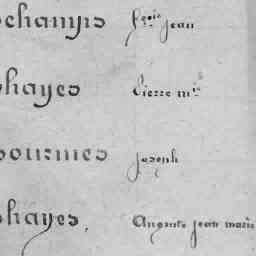 schamps fçois Jean
shayes Pierre mie
bournes Joseph
shayes, Auguste Jean marie